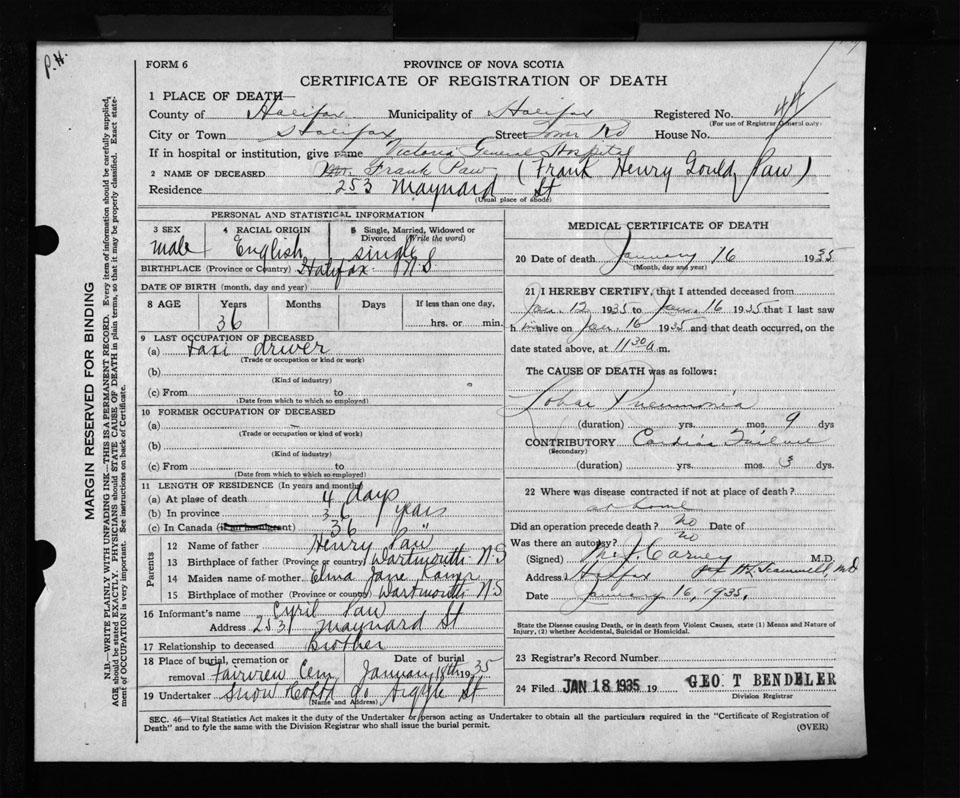 P.H.
FORM 6
PROVINCE OF NOVA SCOTIA
CERTIFICATE OF REGISTRATION OF DEATH
1 PLACE OF DEATH—
County of Halifax Municipality of Halifax Registered No. 44
(For use of Registrar General only)
City or Town Halifax Street Tower Rd House No.
If in hospital or institution, give name Victoria General Hospital
2 NAME OF DECEASED Frank Paw, (Frank Henry Gould Paw)
Residence 253 Maynard St
(Usual place of abode)
PERSONAL AND STATISTICAL INFORMATION
3 SEX 4 RACIAL ORIGIN 5 Single, Married, Widowed or Divorced (Write the word)
male English single
BIRTHPLACE (Province or Country) Halifax N S
DATE OF BIRTH (month, day and year)
8 AGE Years Months Days If less than one day,
36 hrs. or min.
9 LAST OCCUPATION OF DECEASED
(a) taxi driver
(Trade or occupation or kind or work)
(b)
(Kind of industry)
(c) From to
(Date from which to which so employed)
10 FORMER OCCUPATION OF DECEASED
(a) –
(Trade or occupation or kind of work)
(b)
(Kind of industry)
(c) From to
(Date from which to which so employed)
11 LENGTH OF RESIDENCE (In years and months)
(a) At place of death 4 days
(b) In province 36 years
(c) In Canada (if an immigrant) 36 "
Parents
12 Name of father Henry Paw
13 Birthplace of father (Province or country) Dartmouth N.S
14 Maiden name of mother Jane
15 Birthplace of mother (Province or country) Dartmouth N S
16 Informant's name Cyril Paw
Address 253 Maynard St
17 Relationship to deceased Brother
18 Place of burial, cremation or removal Fairview Cem Date of burial January 18th 1935
19 Undertaker Snow 90 Argyle St
(Name and Address)
MEDICAL CERTIFICATE OF DEATH
20 Date of death January 16 1935
(Month, day and year)
21 I HEREBY CERTIFY, that I attended deceased from
Jan. 12 1935 to Jan. 16 1935 that I last saw
h im alive on Jan. 16 1935 and that death occurred, on the
date stated above, at 11 30 a.m.
The CAUSE OF DEATH was as follows:
Lobar Pneumonia
(duration) yrs. mos. 9 dys.
CONTRIBUTORY Cardiac Failure
(Secondary)
(duration) yrs. mos. 3 dys.
22 Where was disease contracted if not at place of death?
at home
Did an operation precede death? no Date of
Was there an autopsy? no
(Signed) Carney M.D.
Address Halifax M.D
Date January 16, 1935.
State the Disease causing Death, or in death from Violent Causes, state (1) Means and Nature of
Injury, (2) whether Accidental, Suicidal or Homicidal.
23 Registrar's Record Number
24 Filed JAN 18 1935 19 GEO. T BENDELER
Division Registrar
SEC. 46—Vital Statistics Act makes it the duty of the Undertaker or person acting as Undertaker to obtain all the particulars required in the "Certificate of Registration of
Death" and to fyle the same with the Division Registrar who shall issue the burial permit.
(OVER)
MARGIN RESERVED FOR BINDING
N.B.—WRITE PLAINLY WITH UNFADING INK—THIS IS A PERMANENT RECORD. Every item of information should be carefully supplied,
AGE should be stated EXACTLY. PHYSICIANS should STATE CAUSE OF DEATH in plain terms, so that it may be properly classified. Exact state-
ment of OCCUPATION is very important. See instructions on back of Certificate.